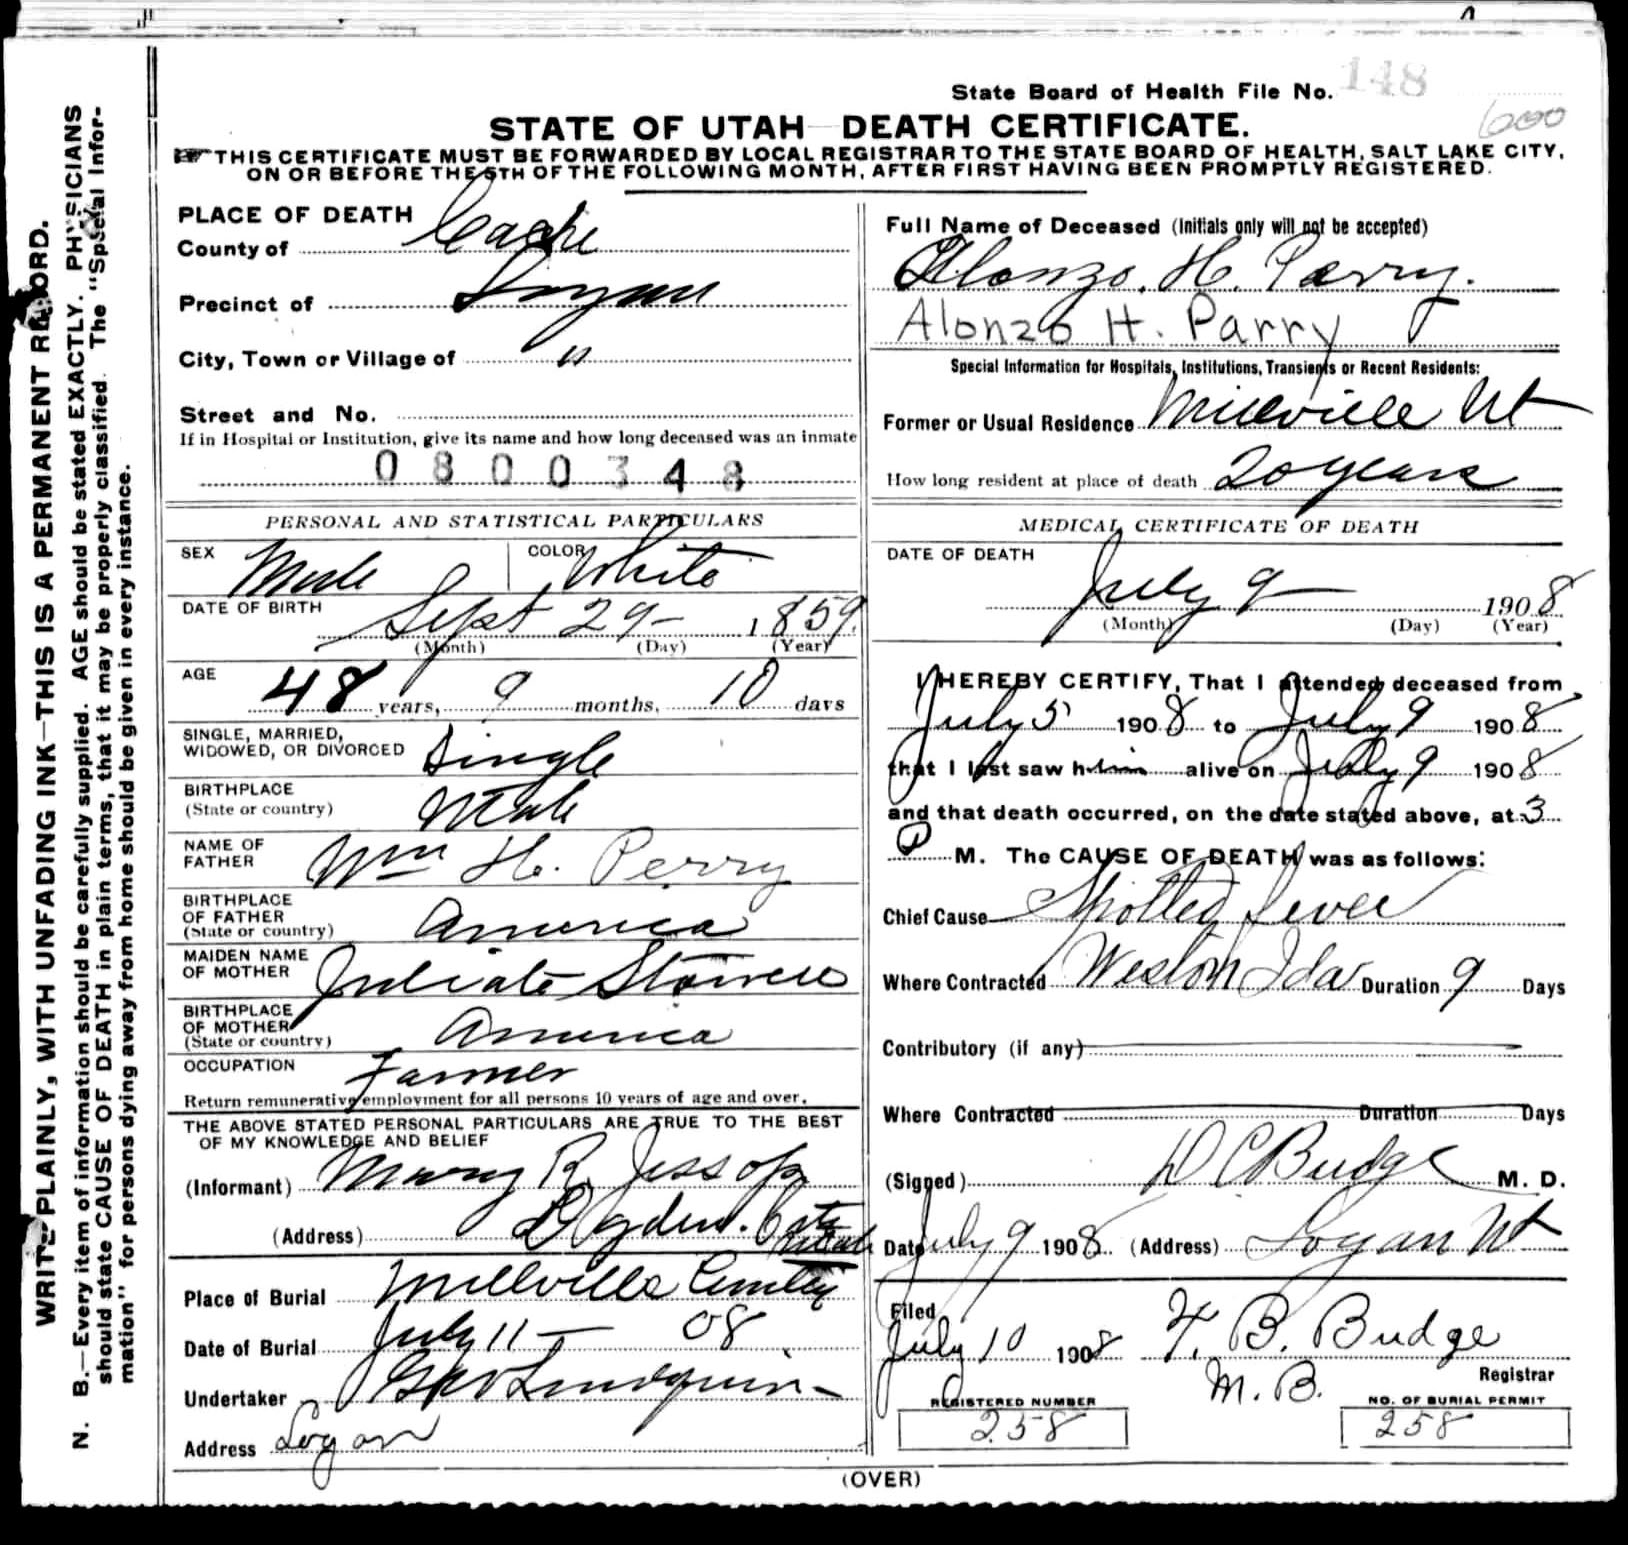 State Board of Health File No. 148
600
STATE OF UTAH—DEATH CERTIFICATE.
THIS CERTIFICATE MUST BE FORWARDED BY LOCAL REGISTRAR TO THE STATE BOARD OF HEALTH, SALT LAKE CITY,
ON OR BEFORE THE 5TH OF THE FOLLOWING MONTH, AFTER FIRST HAVING BEEN PROMPTLY REGISTERED.
WRITE PLAINLY, WITH UNFADING INK—THIS IS A PERMANENT RECORD.
N. B.—Every item of information should be carefully supplied. AGE should be stated EXACTLY. PHYSICIANS
should state CAUSE OF DEATH in plain terms, that it may be properly classified. The "Special Infor-
mation" for persons dying away from home should be given in every instance.
PLACE OF DEATH
County of Cache
Precinct of Logan
City, Town or Village of "
Street and No.
If in Hospital or Institution, give its name and how long deceased was an inmate
0800348
PERSONAL AND STATISTICAL PARTICULARS
SEX Male COLOR White
DATE OF BIRTH Sept 29 - 1859
(Month) (Day) (Year)
AGE
48 years, 9 months, 10 days
SINGLE, MARRIED,
WIDOWED, OR DIVORCED Single
BIRTHPLACE
(State or country) Utah
NAME OF
FATHER Wm H. Perry
BIRTHPLACE
OF FATHER
(State or country) America
MAIDEN NAME
OF MOTHER
BIRTHPLACE
OF MOTHER
(State or country) America
OCCUPATION Farmer
Return remunerative employment for all persons 10 years of age and over.
THE ABOVE STATED PERSONAL PARTICULARS ARE TRUE TO THE BEST
OF MY KNOWLEDGE AND BELIEF
(Informant) Mary R. Jessop
(Address) Ogden City
Utah
Place of Burial Millville
Date of Burial July 11 - 08
Undertaker
Address Logan
Full Name of Deceased (Initials only will not be accepted)
Alonzo. H. Perry.
Alonzo H. Parry
Special Information for Hospitals, Institutions, Transients or Recent Residents:
Former or Usual Residence Millville Ut
How long resident at place of death 20 years
MEDICAL CERTIFICATE OF DEATH
DATE OF DEATH
July 9 1908
(Month) (Day) (Year)
I HEREBY CERTIFY, That I attended deceased from
July 5 1908 to July 9 1908
that I last saw him alive on July 9 1908
and that death occurred, on the date stated above, at 3
P M. The CAUSE OF DEATH was as follows:
Chief Cause Spotted Fever
Where Contracted Weston Ida Duration 9 Days
Contributory (if any)
Where Contracted Duration Days
(Signed) D C Budge M. D.
Date July 9 1908 (Address) Logan Ut
Filed
July 10 1908 F. B. Budge
Registrar
M. B.
REGISTERED NUMBER
258
NO. OF BURIAL PERMIT
258
(OVER)